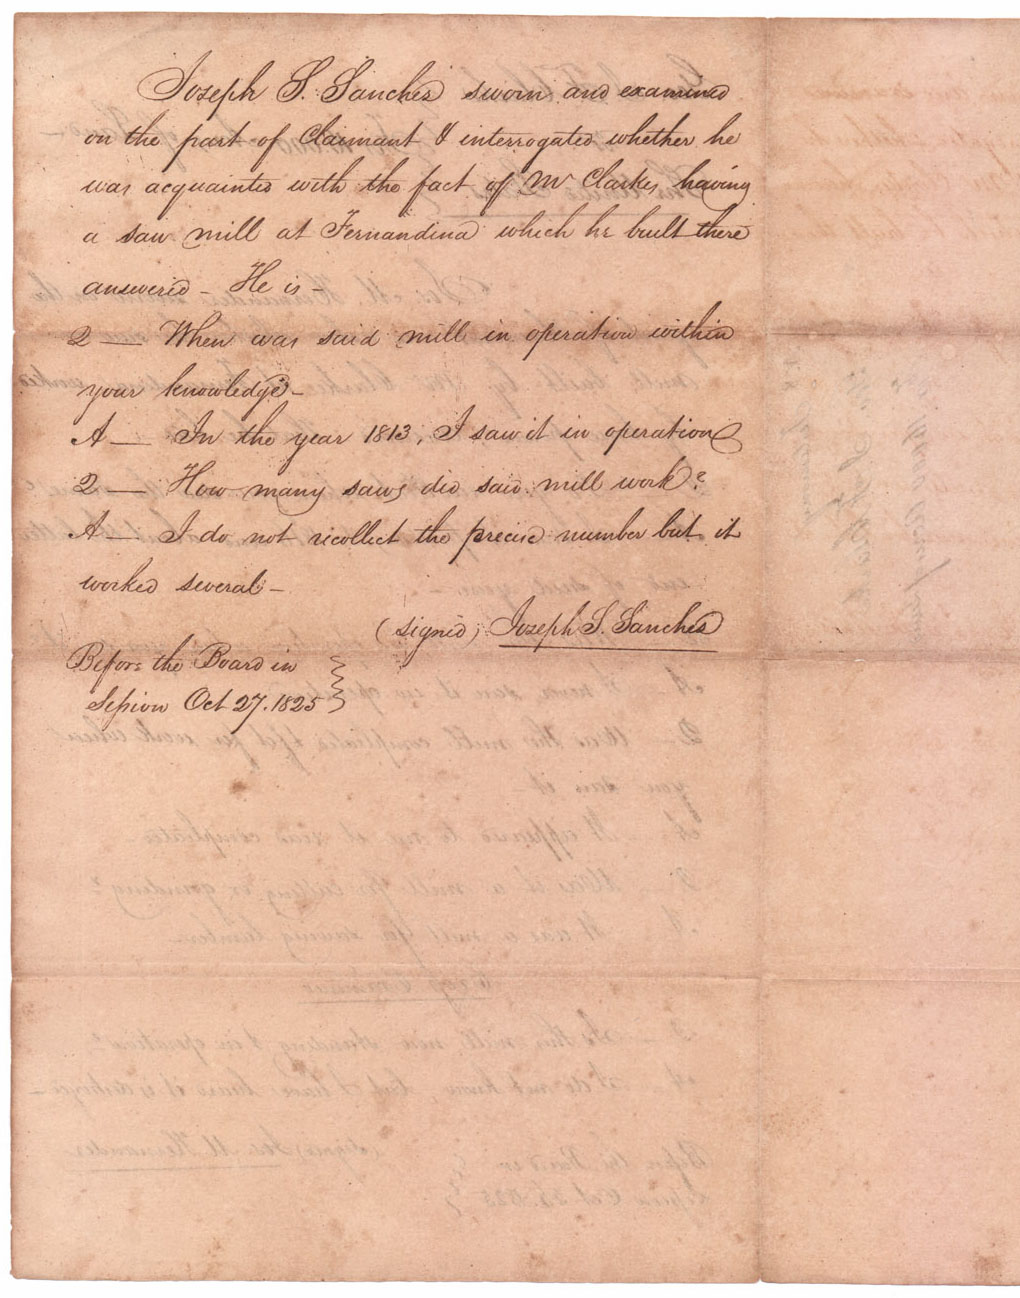 Joseph S. Sanchez sworn and examined
on the part of Claimant & interrogated whether he
was acquainted with the fact of Mr Clarkes having
a saw mill at Fernandina which he built there
answered – He is –
Q — When was said mill in operation within
your knowledge –
A — In the year 1813, I saw it in operation
Q — How many saws did said mill work?
A — I do not recollect the precise number but it
worked several –
(signed) Joseph S. Sanchez
Before the Board in
Session Oct 27. 1825